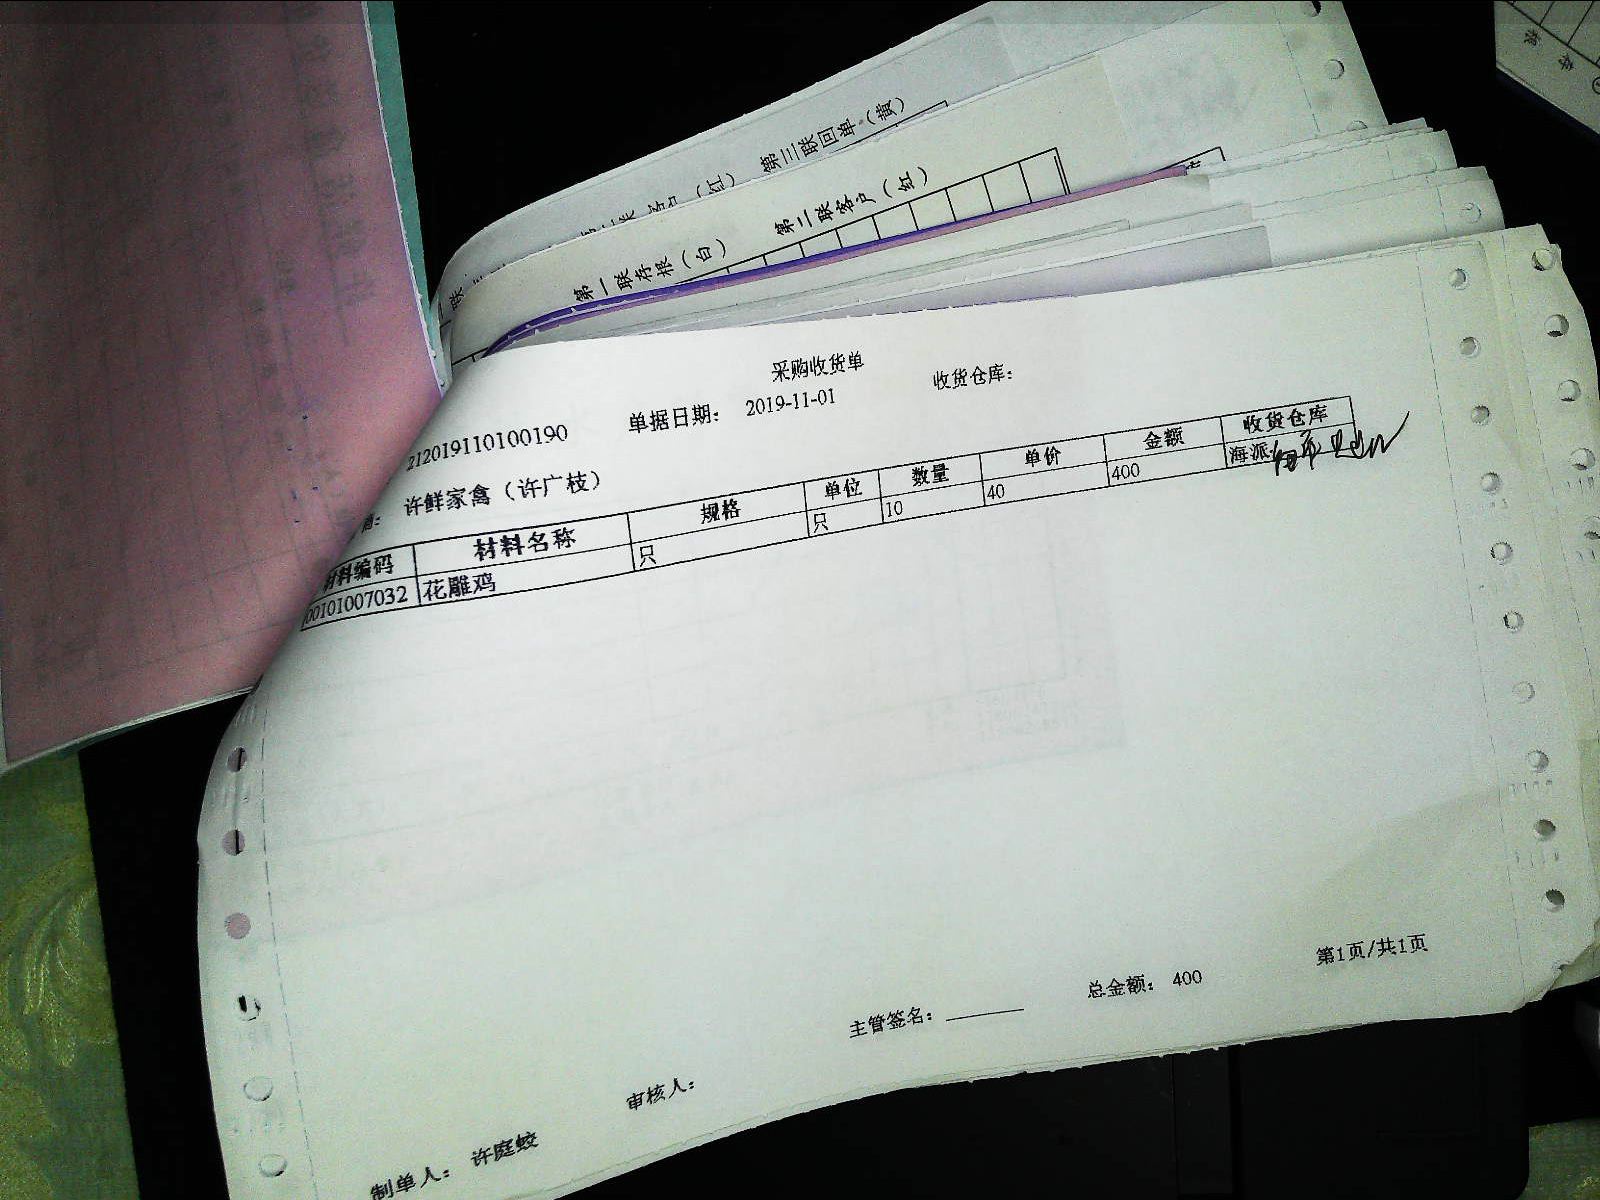 第三联回单（黄）
第二联客户（红）
第一联存根（白）
采购收货单
212019110100190 单据日期： 2019-11-01 收货仓库：
许鲜家禽（许广枝）
材料编码 材料名称 规格 单位 数量 单价 金额 收货仓库
00101007032 花雕鸡 只 只 10 40 400 海派
主管签名： 总金额： 400 第1页/共1页
制单人： 许庭蛟 审核人：